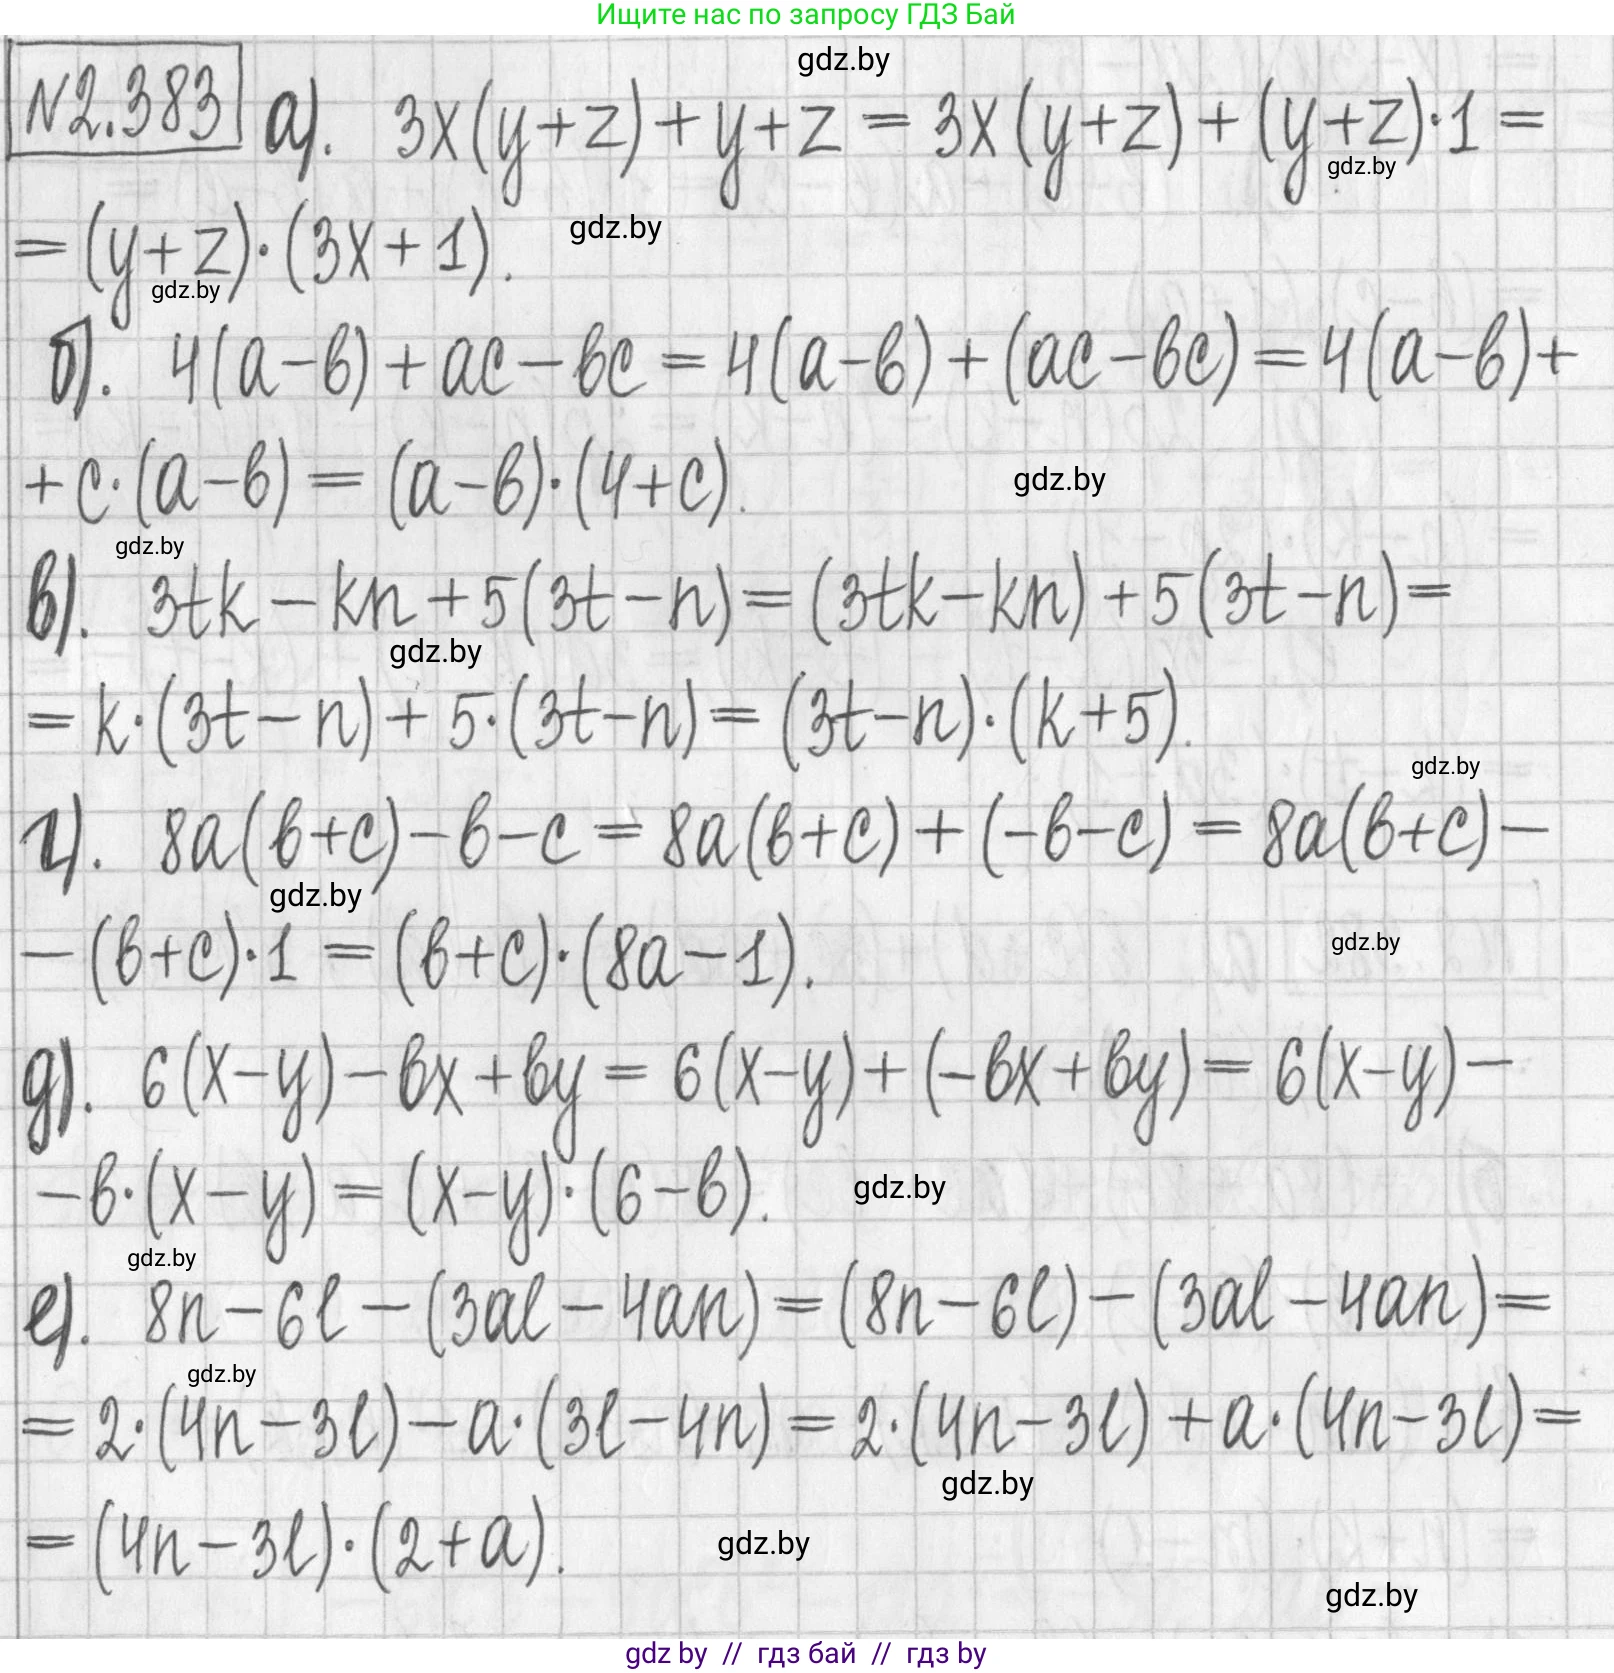 Ищите нас по запросу ГДЗ Бай
gdz.by
№2.383 а). 3x(y+z)+y+z = 3x(y+z)+(y+z)·1 =
gdz.by
= (y+z)·(3x+1).
gdz.by
gdz.by
б). 4(a-в)+ac-вc = 4(a-в)+(ac-вc) = 4(a-в)+
+c·(a-в) = (a-в)·(4+c).
gdz.by
gdz.by
в). 3tk-kn+5(3t-n) = (3tk-kn)+5(3t-n) =
gdz.by
= k·(3t-n)+5·(3t-n) = (3t-n)·(k+5).
gdz.by
г). 8a(в+c)-в-c = 8a(в+c)+(-в-c) = 8a(в+c)-
gdz.by
-(в+c)·1 = (в+c)·(8a-1).
gdz.by
д). 6(x-y)-вx+вy = 6(x-y)+(-вx+вy) = 6(x-y)-
-в·(x-y) = (x-y)·(6-в).
gdz.by
gdz.by
е). 8n-6l-(3al-4an) = (8n-6l)-(3al-4an) =
gdz.by
= 2·(4n-3l)-a·(3l-4n) = 2·(4n-3l)+a·(4n-3l) =
gdz.by
= (4n-3l)·(2+a).
gdz.by
gdz.by
gdz by // гдз бай // гдз by